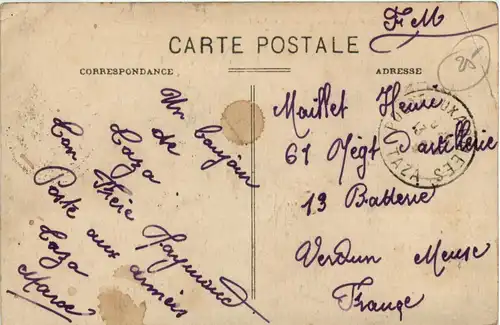 FM
CARTE POSTALE
CORRESPONDANCE
ADRESSE
Un bonjour
de
Caza
Ton Frère Raymond
Poste aux armées
Caza
Maroc
Maillet Henri
61 Régt Dartillerie
13 Batterie
Verdun Meuse
France
POSTE AUX ARMEES
TAZA